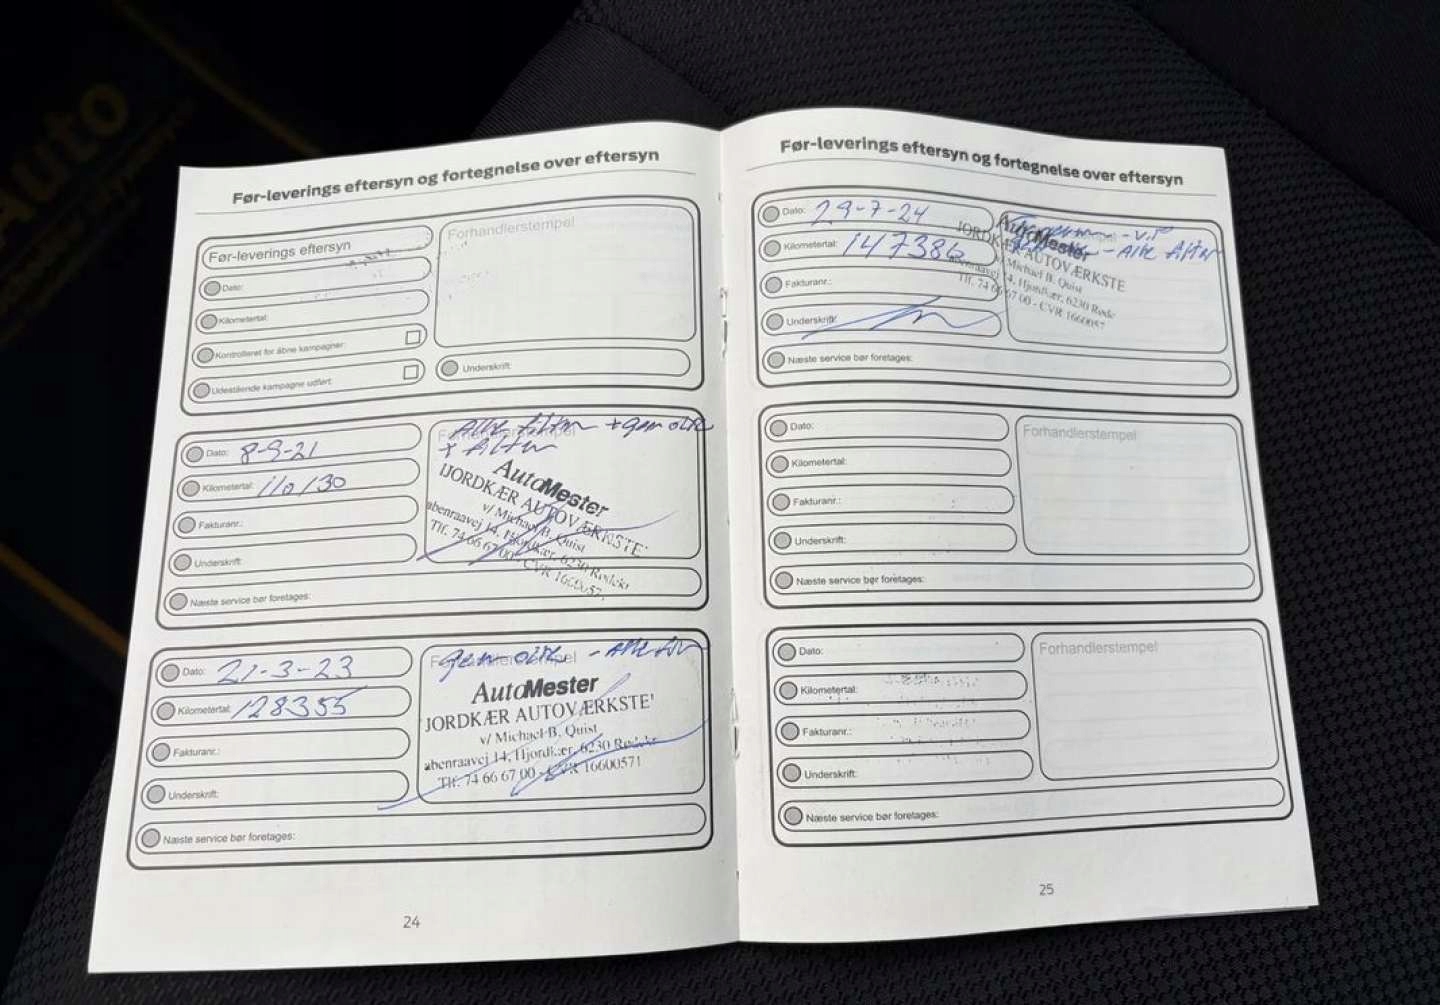 Auto
Før-leverings eftersyn og fortegnelse over eftersyn
Før-leverings eftersyn
Dato:
Kilometertal:
Kontrolleret for åbne kampagner:
Udestående kampagne udført:
Forhandlerstempel
Underskrift:
Dato: 8-9-21
Kilometertal: 110130
Fakturanr.:
Underskrift:
Næste service bør foretages:
Forhandlerstempel
Alle filtre + gear olie
+ filter
AutoMester
JORDKÆR AUTOVÆRKSTE
v/ Michael B. Quist
abenraavej 14, Hjordkær, 6230 Rødekr
Tlf. 74 66 67 00 - CVR 1660057
Dato: 21-3-23
Kilometertal: 128355
Fakturanr.:
Underskrift:
Næste service bør foretages:
Forhandlerstempel
gear olie - Alle
AutoMester
JORDKÆR AUTOVÆRKSTE
v/ Michael B. Quist
abenraavej 14, Hjordkær, 6230 Rødekr
Tlf. 74 66 67 00 - CVR 16600571
24
Før-leverings eftersyn og fortegnelse over eftersyn
Dato: 29-7-24
Kilometertal: 147386
Fakturanr.:
Underskrift:
Næste service bør foretages:
- V.P
- Alle filter
AutoMester
JORDKÆR AUTOVÆRKSTE
v/ Michael B. Quist
abenraavej 14, Hjordkær, 6230 Røde
Tlf. 74 66 67 00 - CVR 1660057
Dato:
Kilometertal:
Fakturanr.:
Underskrift:
Næste service bør foretages:
Forhandlerstempel
Dato:
Kilometertal:
Fakturanr.:
Underskrift:
Næste service bør foretages:
Forhandlerstempel
25